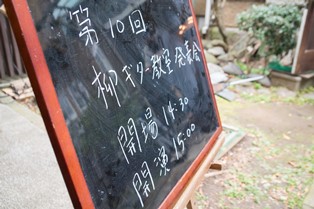 第10回
柳ギター教室発表会
開場 14:30
開演 15:00